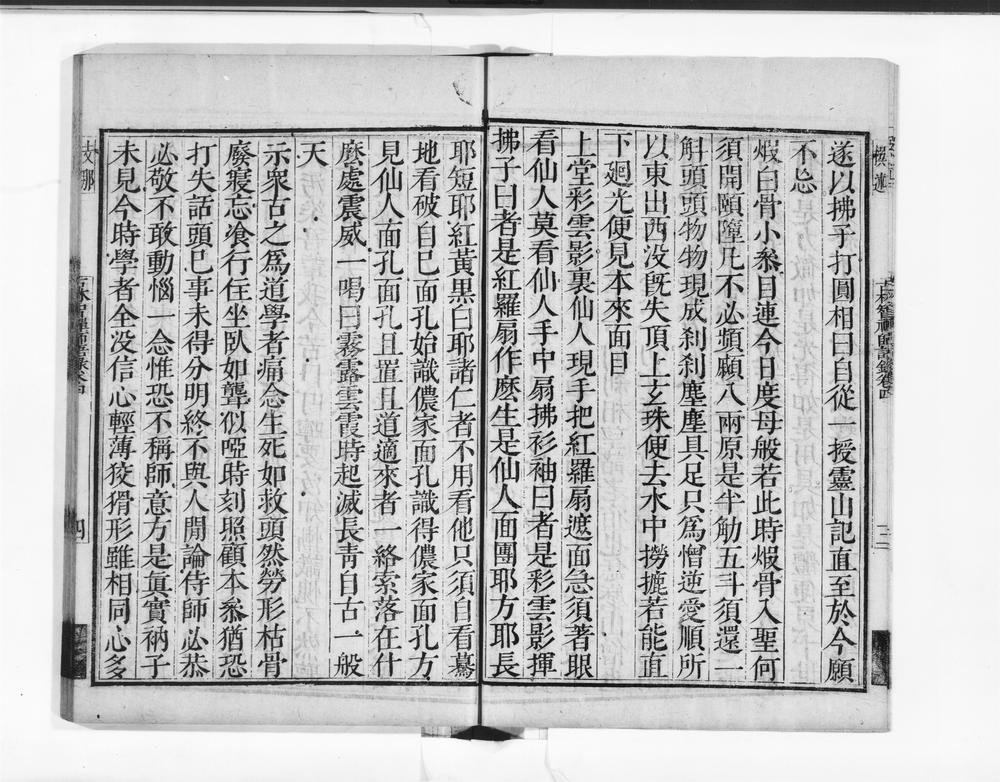 遂以拂子打圓相曰自從一授靈山記直至於今願
不忘
煆白骨小叅目連今日度母般若此時煆骨入聖何
須開頤墮凡不必頻願八兩原是半觔五斗須還一
斛頭頭物物現成刹刹塵塵具足只爲憎逆愛順所
以東出西没旣失頂上玄珠便去水中撈摝若能直
下廻光便見本來面目
上堂彩雲影裏仙人現手把紅羅扇遮面急須著眼
看仙人莫看仙人手中扇拂衫袖曰者是彩雲影揮
拂子曰者是紅羅扇作麽生是仙人面團耶方耶長
耶短耶紅黃黑白耶諸仁者不用看他只須自看驀
地看破自巳面孔始識儂家面孔識得儂家面孔方
見仙人面孔面孔且置且道適來者一絡索落在什
麽處震威一喝曰霧露雲霞時起滅長靑自古一般
天
示衆古之爲道學者痛念生死如救頭然勞形枯骨
廢寢忘飡行住坐臥如聾似啞時刻照顧本叅猶恐
打失話頭巳事未得分明終不與人閒論侍師必恭
必敬不敢動惱一念惟恐不稱師意方是眞實衲子
未見今時學者全没信心輕薄狡猾形雖相同心多
支那
四